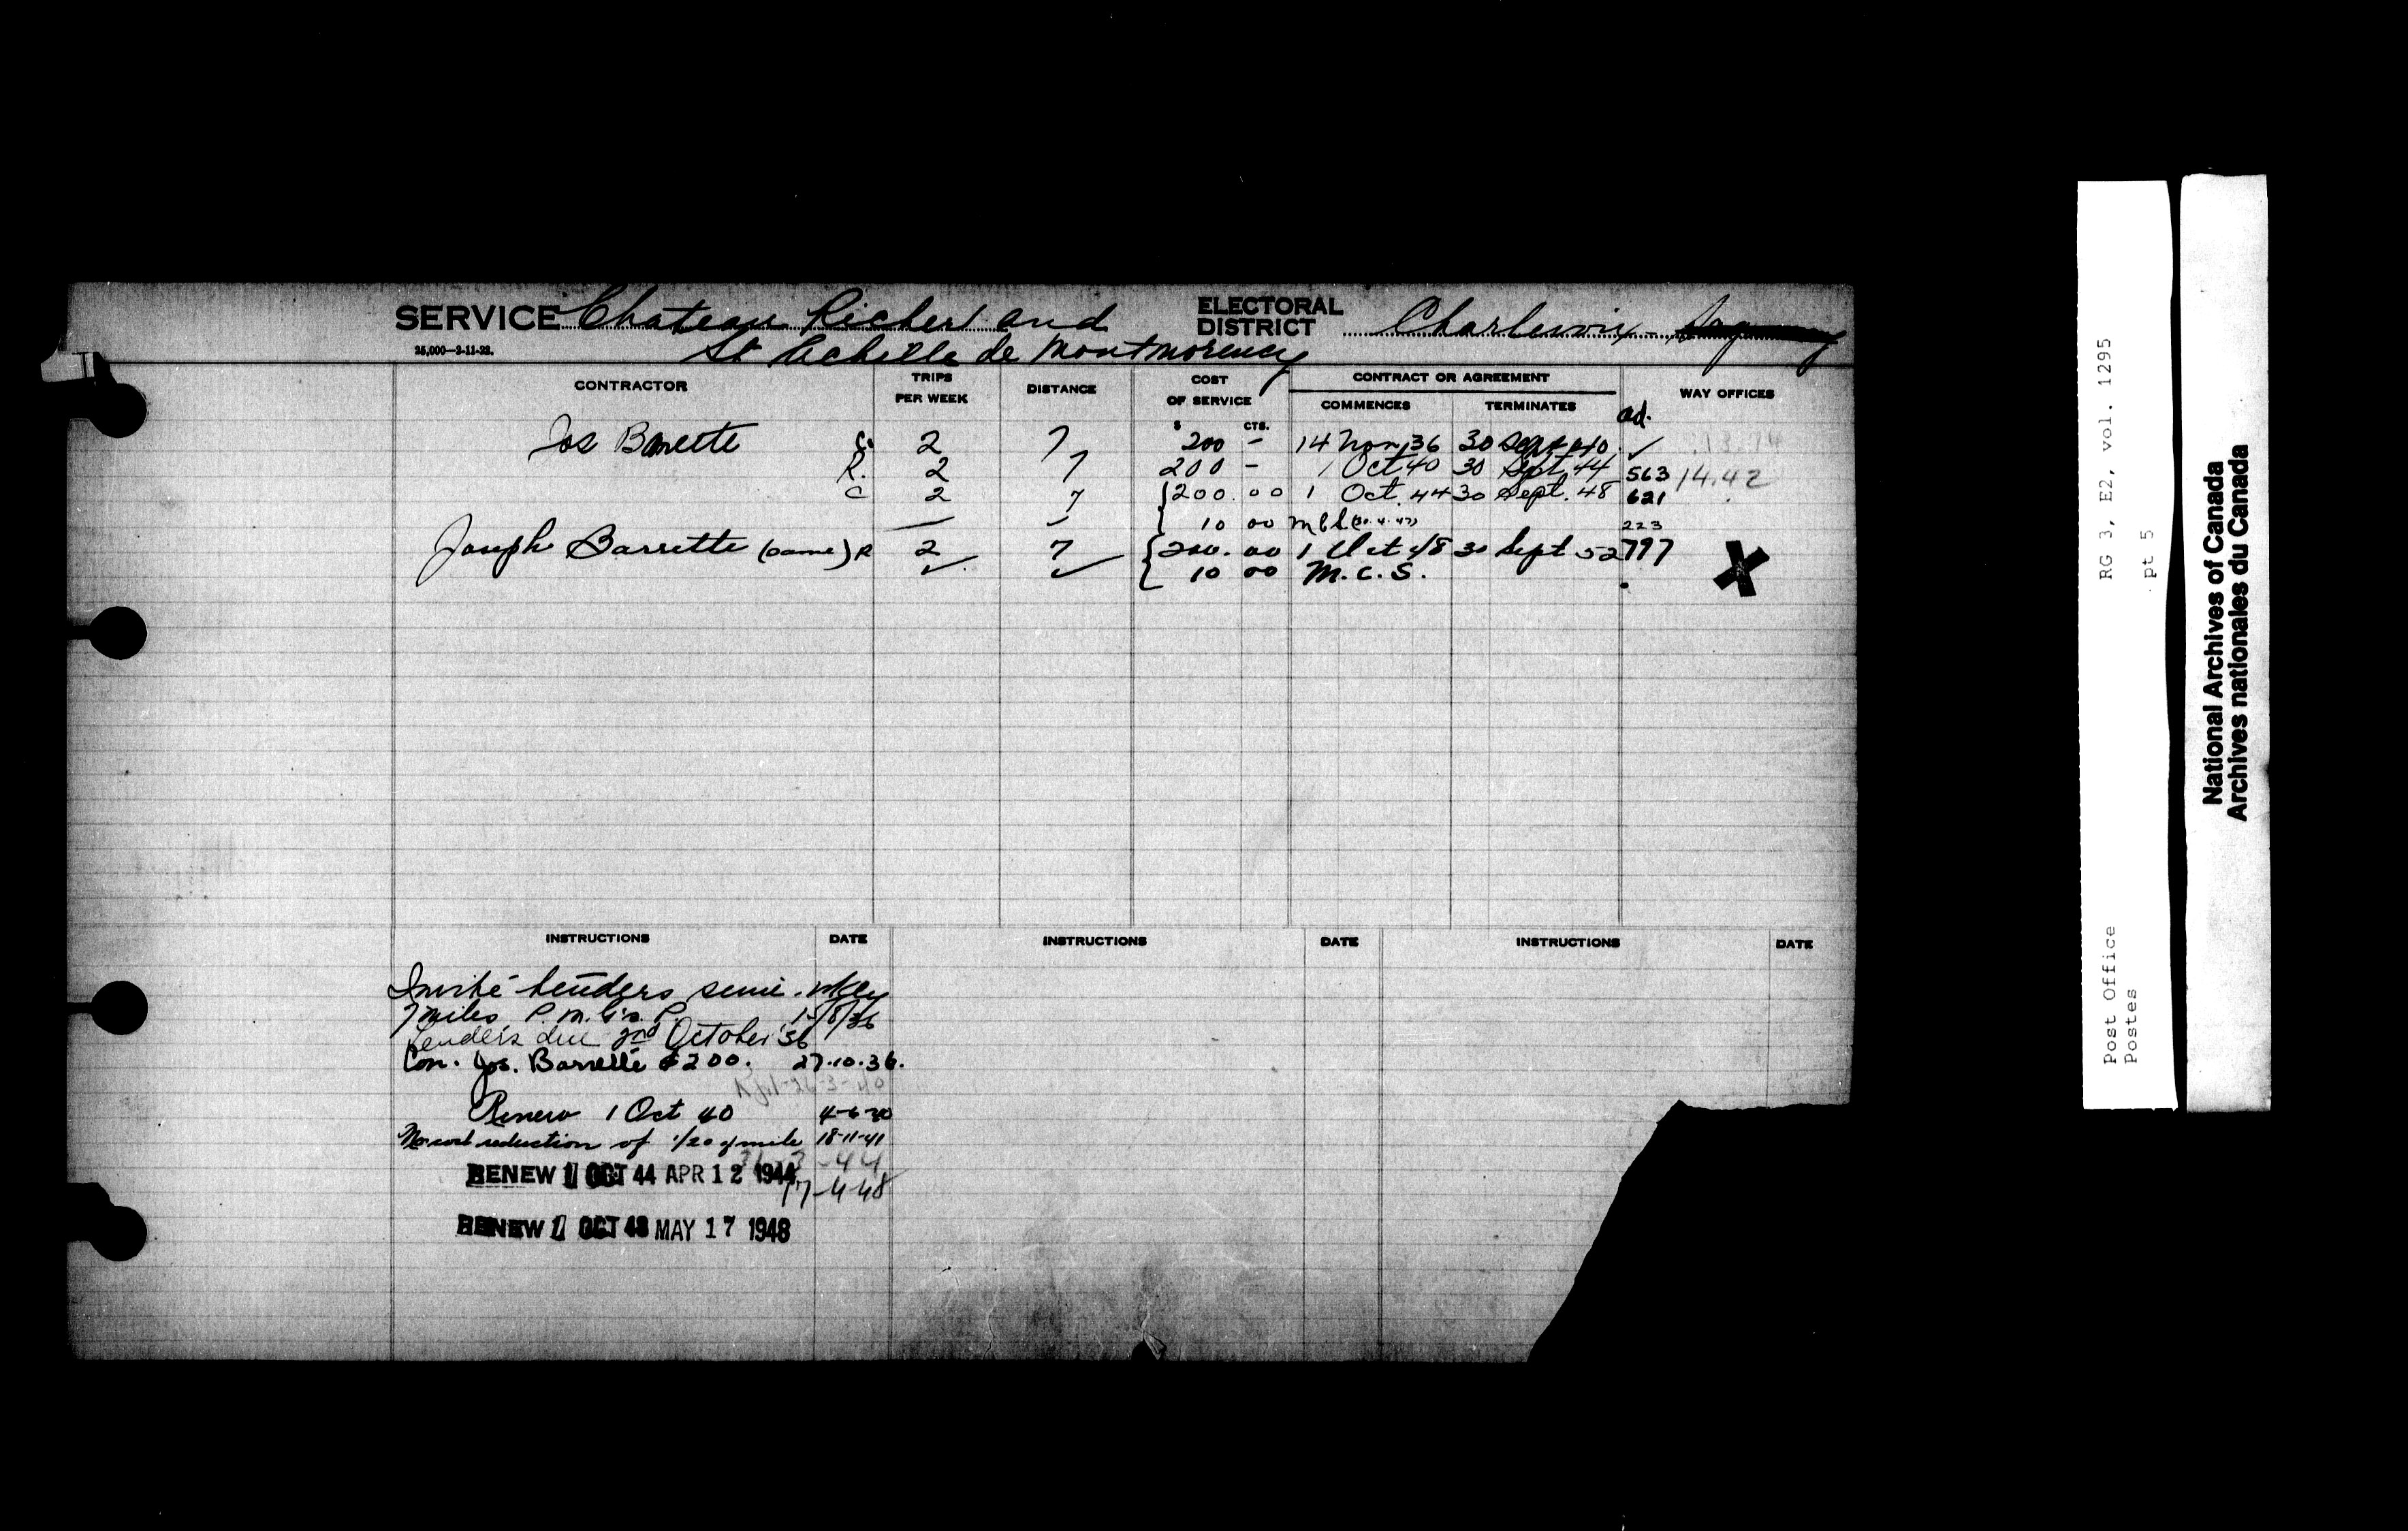 SERVICE Chateau Richer and
St Achille de Montmorency
ELECTORAL DISTRICT Charlevoix -
25,000—2-11-22.
CONTRACTOR TRIPS PER WEEK DISTANCE COST OF SERVICE CONTRACT OR AGREEMENT COMMENCES TERMINATES WAY OFFICES
$ CTS. ad.
Jos Barrette C. 2 7 200 - 14 Nov 36 30 Sept 40 ✓
R. 2 7 200 - 1 Oct 40 30 Sept 44 563 14.42
C 2 7 {200.00 1 Oct. 44 30 Sept. 48 621
10 00 223
Joseph Barrette (same) R 2 7 {200.00 1 Oct 48 30 Sept 52 797 X
10 00 M.C.S.
INSTRUCTIONS DATE INSTRUCTIONS DATE INSTRUCTIONS DATE
Invite tenders semi-wkly
7 miles P.M.G's.
Tenders due 2nd October '36
Con. Jos. Barrette $200. 27.10.36.
Renew 1 Oct 40 4-6-40
reduction of 1/20 18-11-41
-44
RENEW 1 OCT 44 APR 12 1944
17-4-48
RENEW 1 OCT 48 MAY 17 1948
RG 3, E2, vol. 1295
pt 5
Post Office
Postes
National Archives of Canada
Archives nationales du Canada